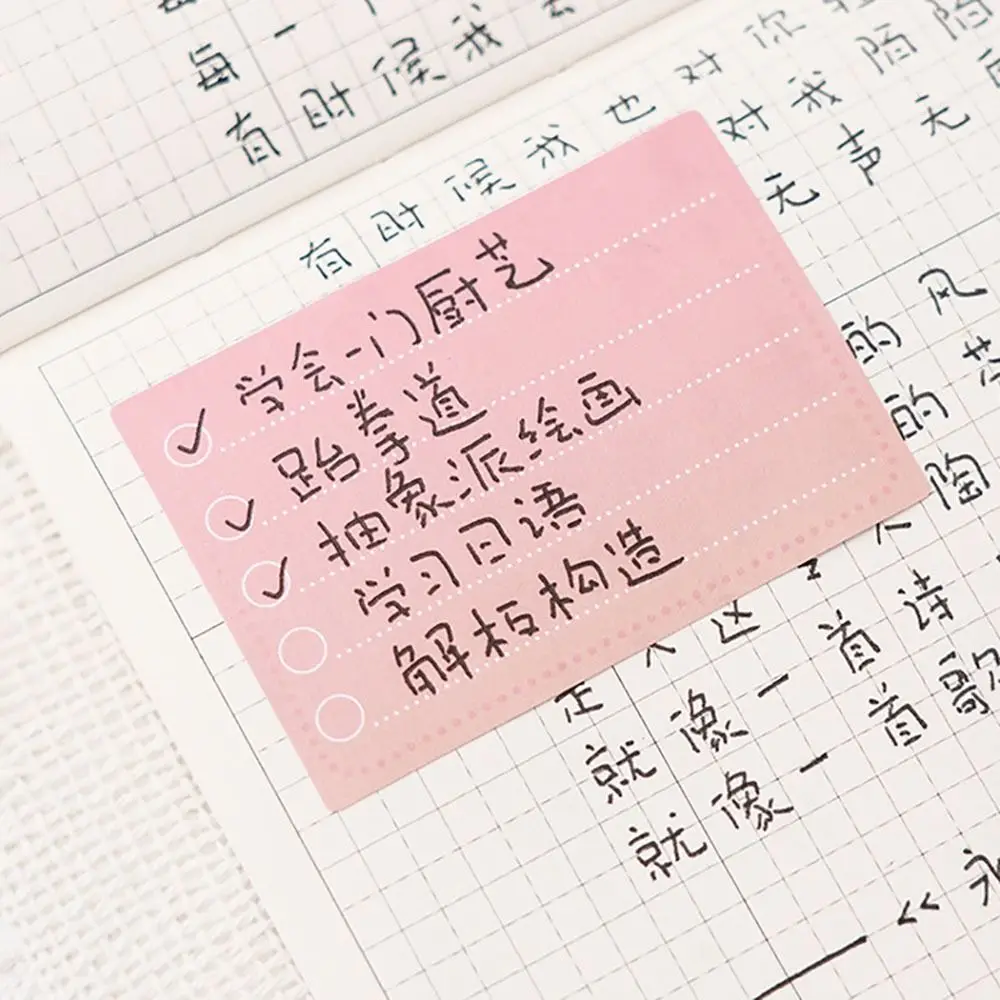 每一
有时候我
有时候我也对你
对我陌陌
无声无
学会一门厨艺
跆拳道
抽象派绘画
学习日语
解析构造
的风
的
陶
这
是
就像一首诗
就像一首歌
<<永